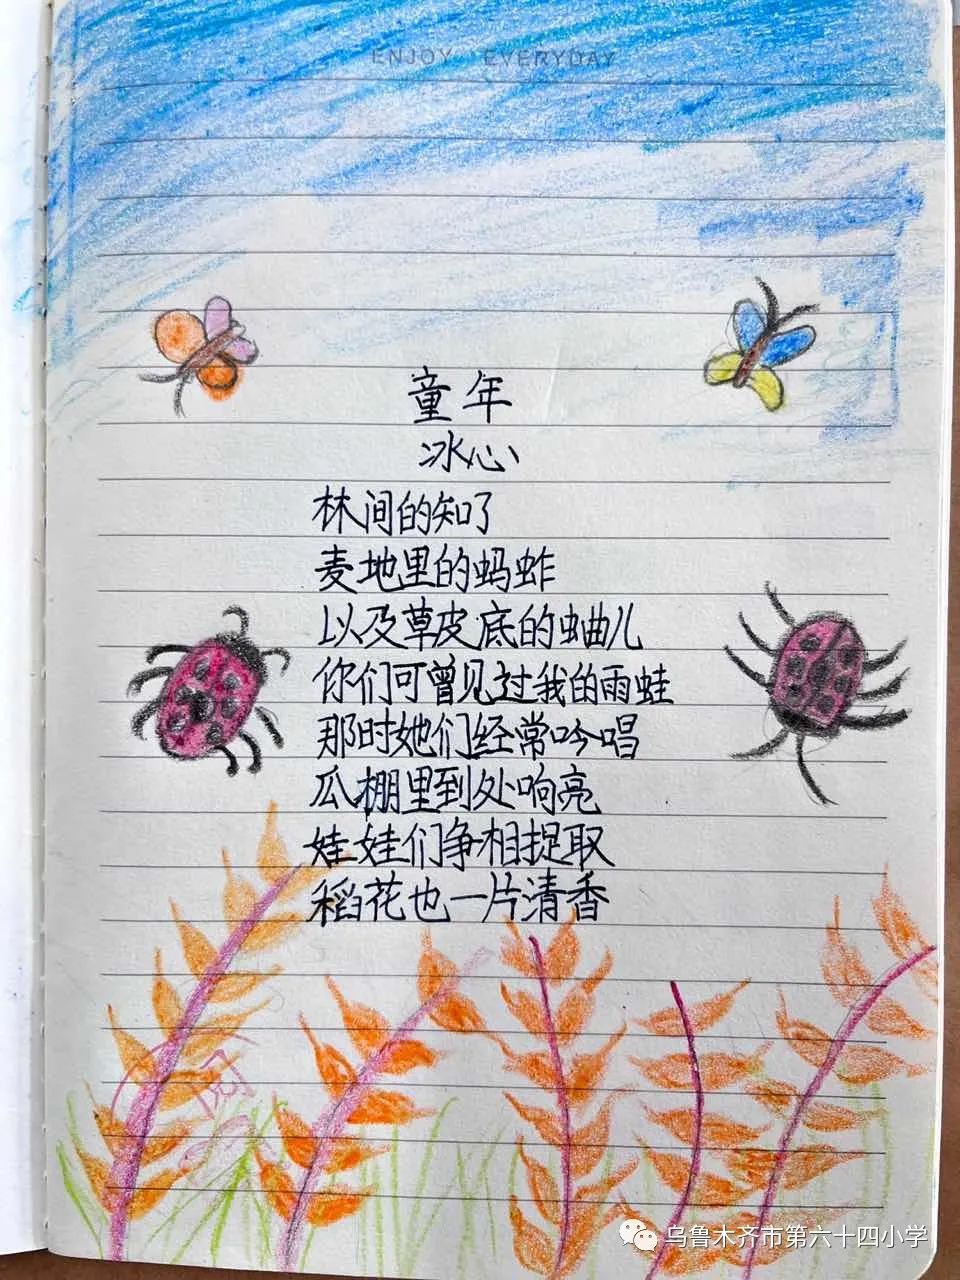 ENJOY EVERYDAY
童年
冰心
林间的知了
麦地里的蚂蚱
以及草皮底的蛐儿
你们可曾见过我的雨蛙
那时她们经常吟唱
瓜棚里到处响亮
娃娃们争相捉取
稻花也一片清香
乌鲁木齐市第六十四小学